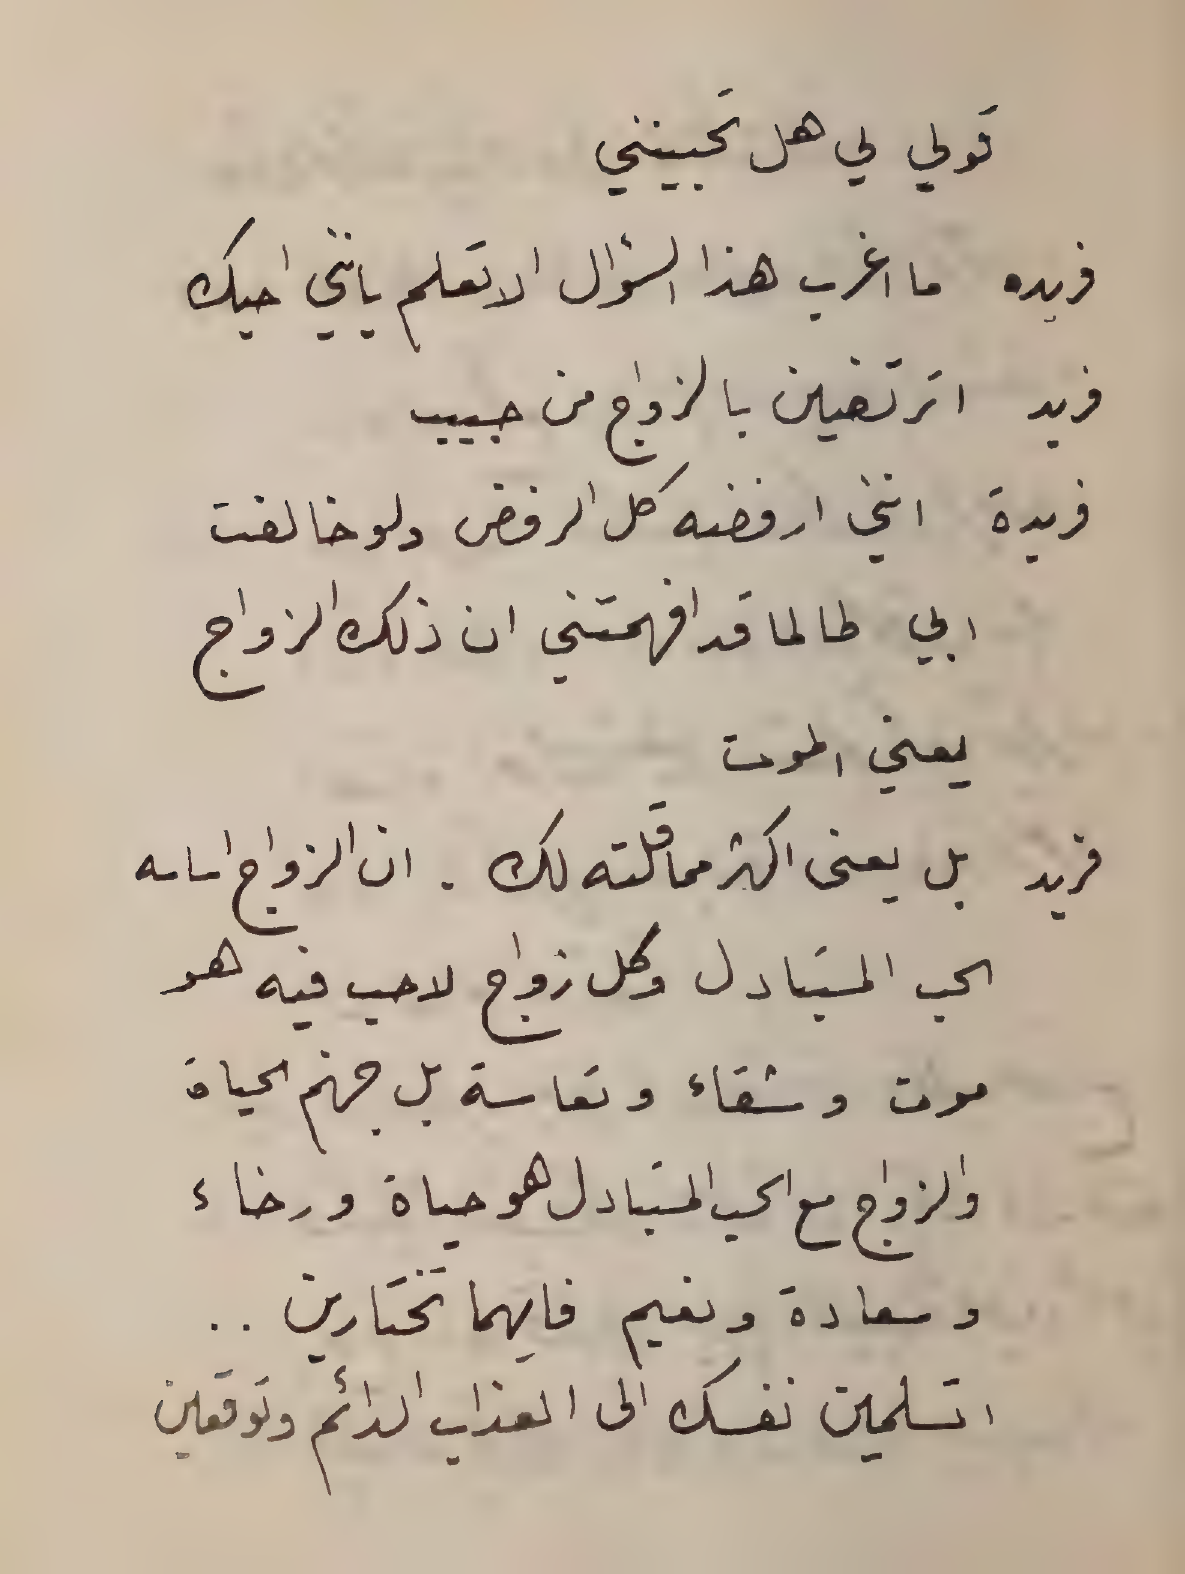 قولي لي هل تحبينني
فريده ما اغرب هذا السؤال الا تعلم بانني احبك
فريد اترتضين بالزواج من حبيب
فريدة انني ارفضه كل الرفض ولو خالفت
ابي طالما قد افهمتني ان ذلك الزواج
يعني الموت
فريد بل يعنى اكثر مما قلته لك . ان الزواج اساسه
الحب المتبادل وكل زواج لا حب فيه هو
موت وشقاء وتعاسة بل جهنم الحياة
والزواج مع الحب المتبادل هو حياة ورخاء
وسعادة ونعيم فايهما تختارين ..
اتسلمين نفسك الى العذاب الدائم وتوقعين